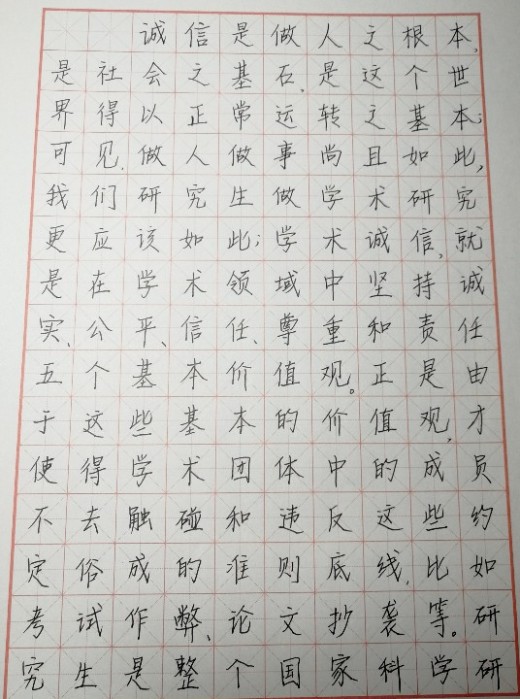 诚信是做人之根本,
是社会之基石,是这个世
界得以正常运转之基本;
可见,做人做事尚且如此,
我们研究生做学术研究
更应该如此;学术诚信,就
是在学术领域中坚持诚
实、公平、信任、尊重和责任
五个基本价值观。正是由
于这些基本的价值观,才
使得学术团体中的成员
不去触碰和违反这些约
定俗成的准则底线,比如
考试作弊、论文抄袭等。研
究生是整个国家科学研